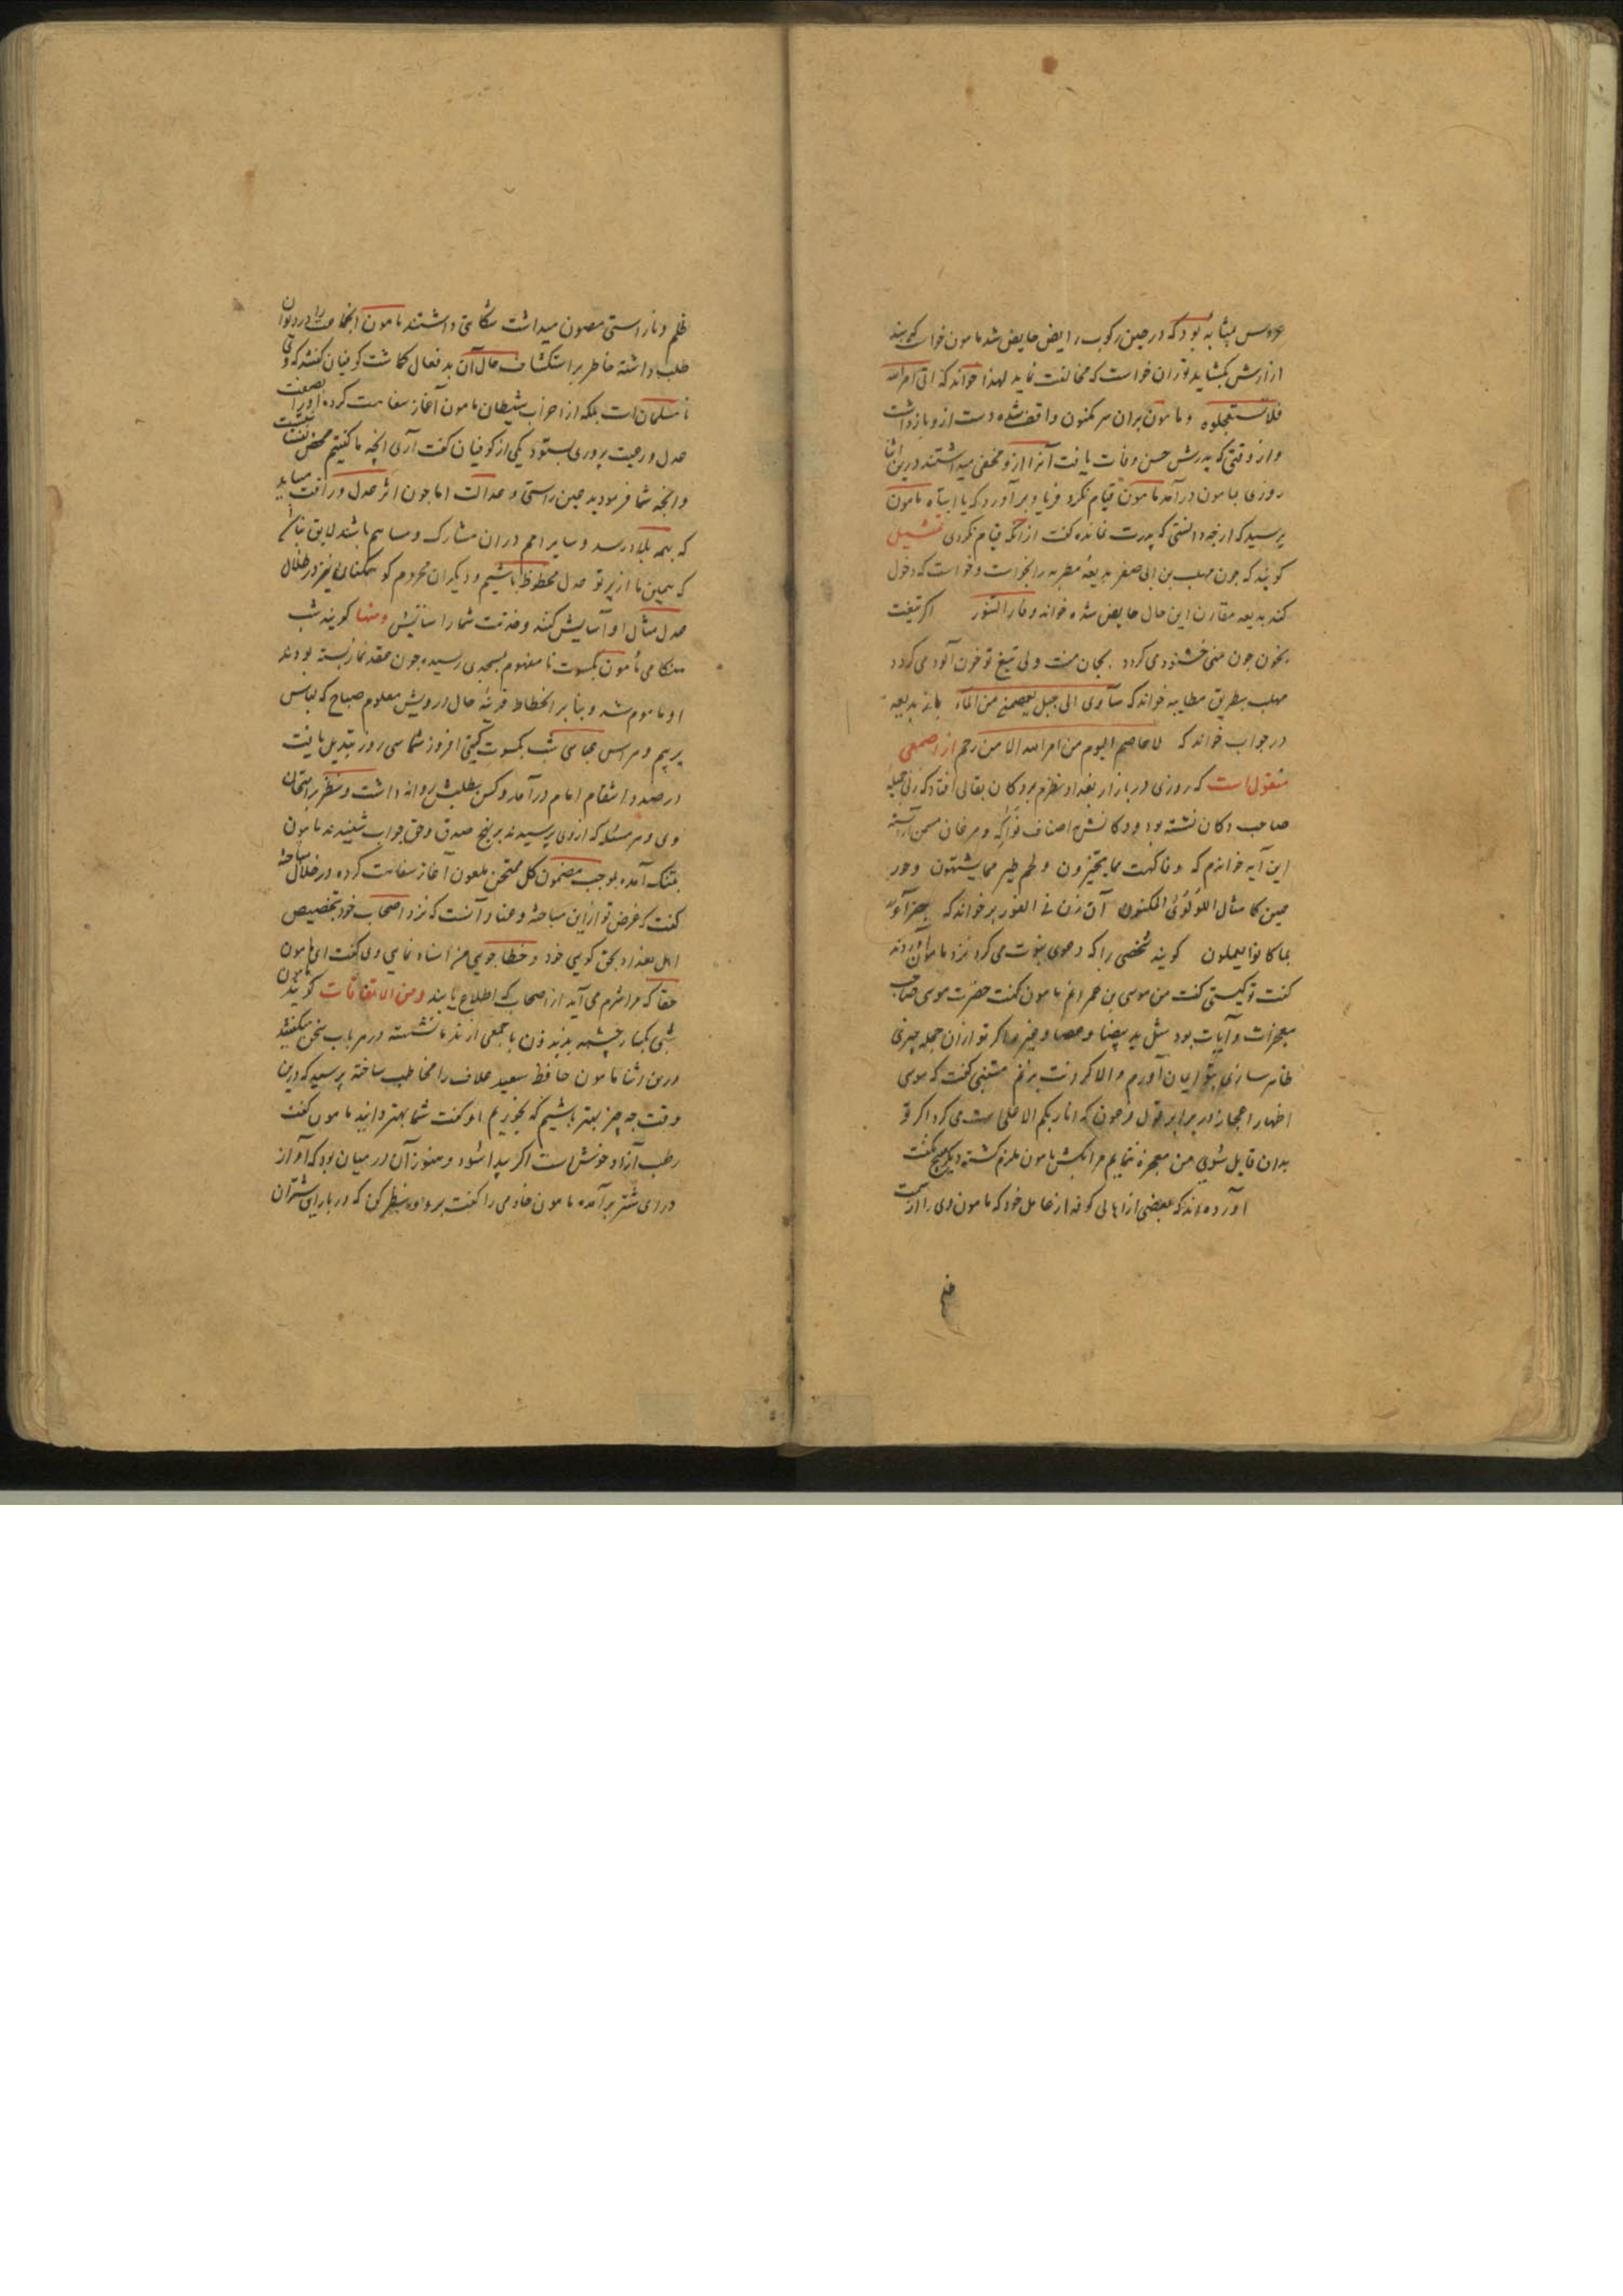 عروس بمثابه بود که در حین رکوب رایض حایض شد مامون خواست که بند
ازارش بکشاید توران خواست که ممانعت نماید لهذا خواند که اتی امر الله
فلا تستعجلوه و مامون بران سر مکنون واقف شده دست ازو بازداشت
و از وقتی که پدرش حسن وفات یافت آنرا ازو مخفی میداشتند درین اثنا
روزی مامون درآمد مامون قیام نکرد فریاد برآورد که یا ابتاه مامون
پرسید که از چه دانستی که پدرت نمانده گفت از انکه قیام نکردی تمثیل
گویند که چون مهلب بن ابی صفر بدیعه مطربه را بخواست و خواست که دخول
کند بدیعه مقارن این حال حایض شده خواند و فار التنور اکر تیغت
بخون چون منی خشنود می کردد بجان منت ولی تیغ تو خون آلود می کردد
مهلب بطریق مطایبه خواند که سآوی الی جبل یعصمنی من الماء باز بدیعه
در جواب خواند که لا عاصم الیوم من امر الله الا من رحم از اصمعی
منقول است که روزی در بازار بغداد نظرم بر دکان بقالی افتاد که زنی جمیله
صاحب دکان نشسته بود و دکانش اصناف فواکه و مرغان مسمن آراسته
این آیه خواندم که و فاکهت مما یتخیرون و لحم طیر مما یشتهون و حور
عین کامثال اللؤلؤ المکنون آن زن فی الفور برخواند که جزآء
بما کانوا یعملون گویند شخصی را که دعوی نبوت می کرد نزد مامون آوردند
گفت تو کیستی گفت من موسی بن عمرانم مامون گفت حضرت موسی صاحب
معجزات و آیات بود مثل ید بیضا و عصا و غیره اکر تو ازان جمله چیزی
ظاهر سازی بتو ایمان آورم والا کردنت بزنم متنبی گفت که موسی
اظهار اعجاز در برابر قول فرعون که انا ربکم الاعلی است می کرد اکر تو
بدان قایل شوی من معجزه نمایم مرا مکش مامون ملزم کشته دیکر هیچ نگفت
آورده اند که بعضی از اهالی کوفه از عامل خود که مامون وی را از
ظلم
ظلم و ناراستی مصون میداشت شکایتی داشتند مامون انجماعت را در دیوان
طلب داشته خاطر بر استکشاف حال آن بدفعال کماشت کوفیان گفتند که وی
نامسلمان است بلکه از احزاب شیطان مامون آغاز سفاهت کرده او را بصفت
عدل و رعیت پروری بستود یکی از کوفیان گفت آری انچه ما گفتیم محض
و انچه شما فرمودید عین راستی و عدالت اما چون اثر عدل و رافت میباید
که بهمه بلاد رسد و سایر امم دران مشارک و مساهم باشند لایق نباشد
که همین ما از پرتو عدل محظوظ باشیم و دیکران محروم کو همکنان نیز در ظلال
عدل مثال او آسایش کنند و خدمت شما را ستایش ومنها گویند شب
هنکامی مامون بکسوت نامفهوم بمسجدی رسیده چون عقد نماز بسته بودند
او ماموم شد و بنا بر انحطاط قرینه حال درویش معلوم صباح که لباس
بهیم و هراس عباسی شب بکسوت گیتی افروز شماسی روز تبدیل یافت
در صدد انتقام امام درآمد و کس بطلبش روانه داشت و بنظر امتحان
وی و هر مسئله که ازوی پرسیدند بر نهج صدق و حق جواب شنیدند مامون
بتنک آمده بموجب مضمون کل ممتحن ملعون آغاز سفاهت کرده در خلال مباحثه
گفت که غرض تو ازین مباحثه و عناد آنست که نزد اصحاب خود بتخصیص
اهل بغداد بحق کویی خود و خطا جویی من اسناد نمایی وی گفت ای مامون
حقا که مرا شرم می آید از اصحاب که اطلاع یابند ومن الاتفاقات گویند
شبی بکنار چشمه بدیدون با جمعی از ندما نشسته در هر باب سخن میگفتند
درین اثنا مامون حافظ سعید علاف را مخاطب ساخته پرسید که درین
وقت چه چیز بهتر باشیم که بخوریم او گفت شما بهتر دانید مامون گفت
رطب آزاد خوش است اکر پیدا شود و هنوز آن در میان بود که آواز
درای شتر برآمد مامون خادمی را گفت برو و بنظر کن که در بارهای شتران